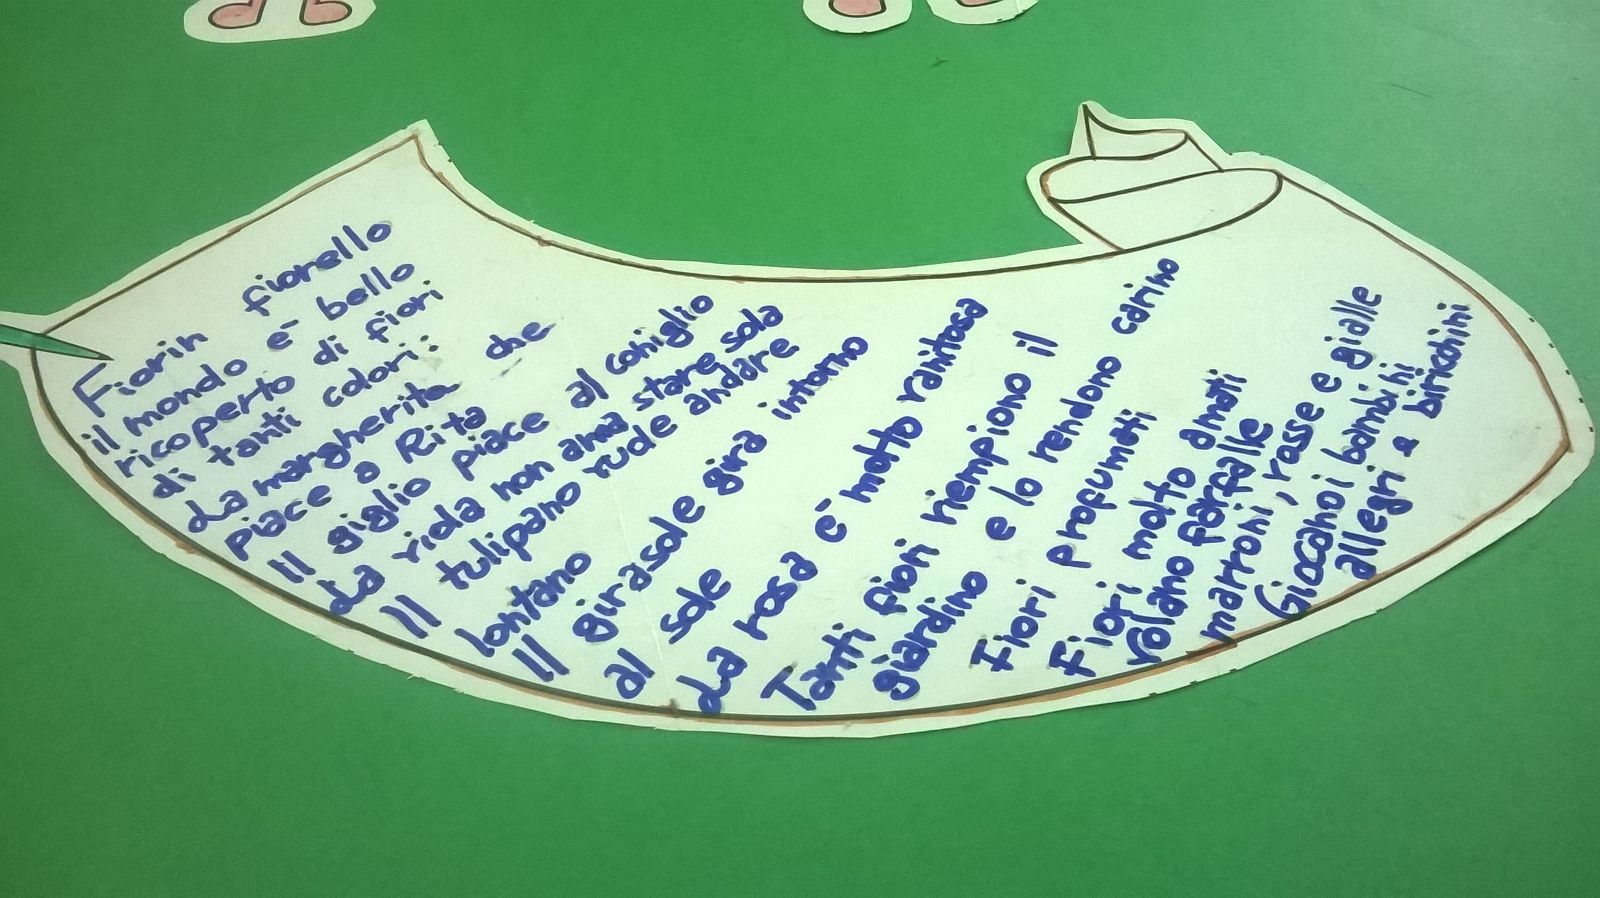 Fiorin fiorello
il mondo e' bello
ricoperto di fiori
di tanti colori:
La margherita che
piace a Rita
Il giglio piace al coniglio
La viola non ama stare sola
Il tulipano vude andare
lontano
Il girasole gira intorno
al sole
La rosa e' molto vanitosa
Tanti fiori riempiono il
giardino e lo rendono carino
Fiori profumati
Fiori molto amati
volano farfalle
marroni, rosse e gialle
Gioccano i bambini
allegri a biricchini